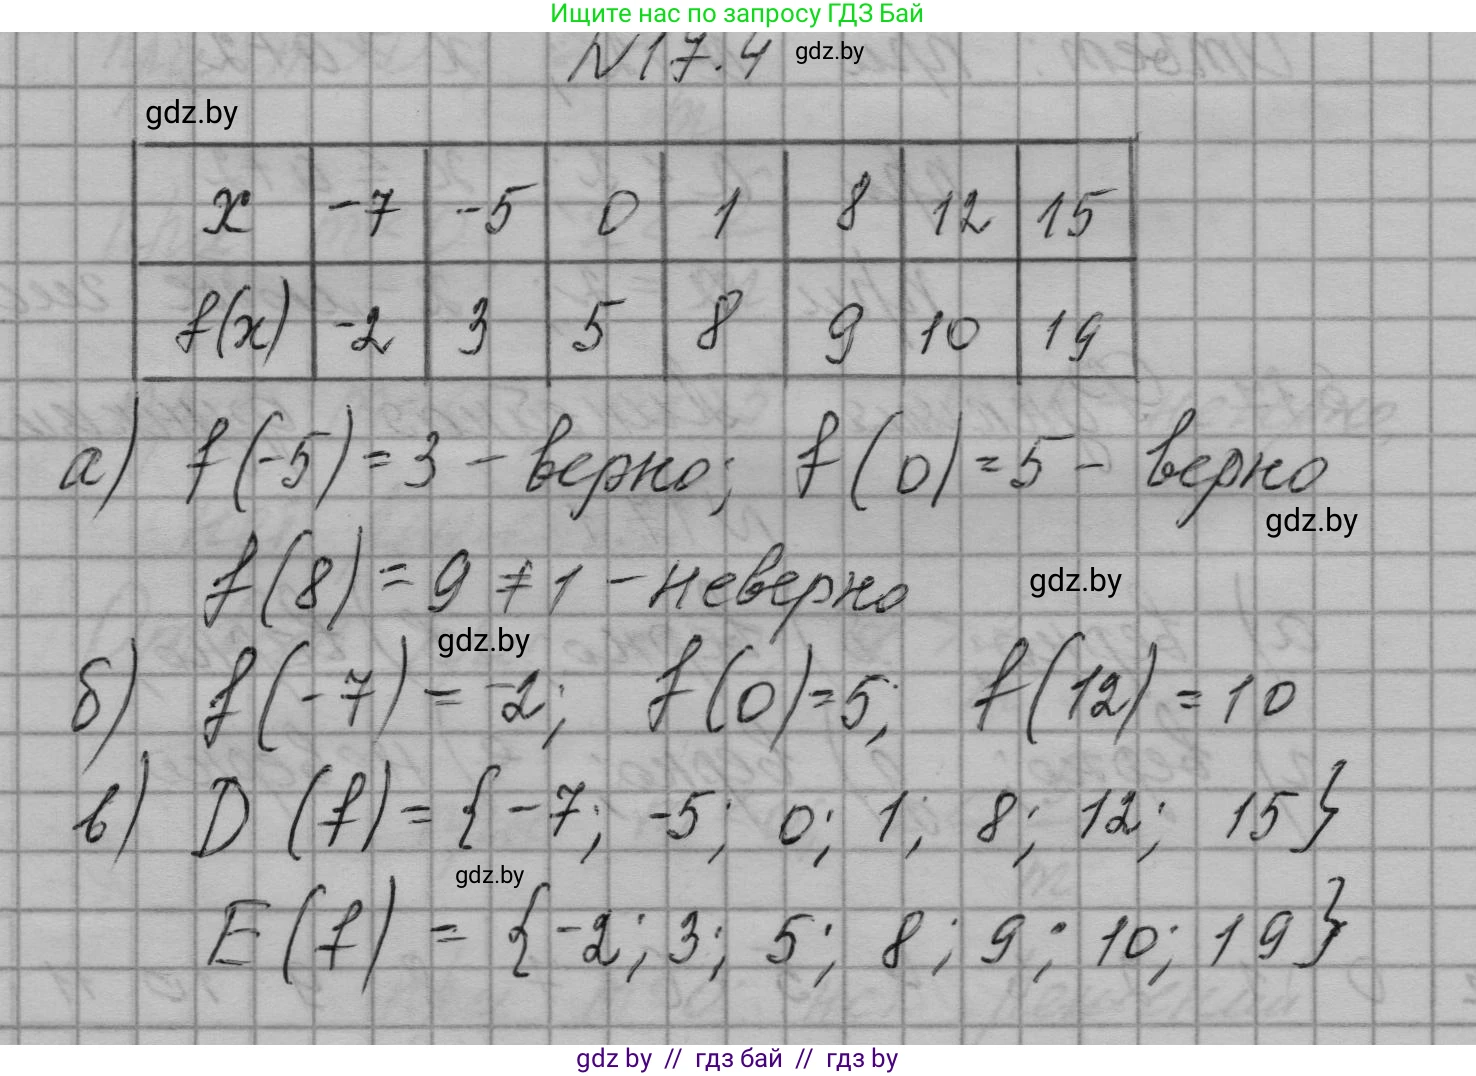 Ищите нас по запросу ГДЗ Бай
N17.4 gdz.by
gdz.by
x -7 -5 0 1 8 12 15
f(x) -2 3 5 8 9 10 19
а) f(-5) = 3 - верно; f(0) = 5 - верно
gdz.by
f(8) = 9 ≠ 1 - неверно gdz.by
gdz.by
б) f(-7) = -2; f(0) = 5; f(12) = 10
в) D(f) = {-7; -5; 0; 1; 8; 12; 15}
gdz.by
E(f) = {-2; 3; 5; 8; 9; 10; 19}
gdz by // гдз бай // гдз by